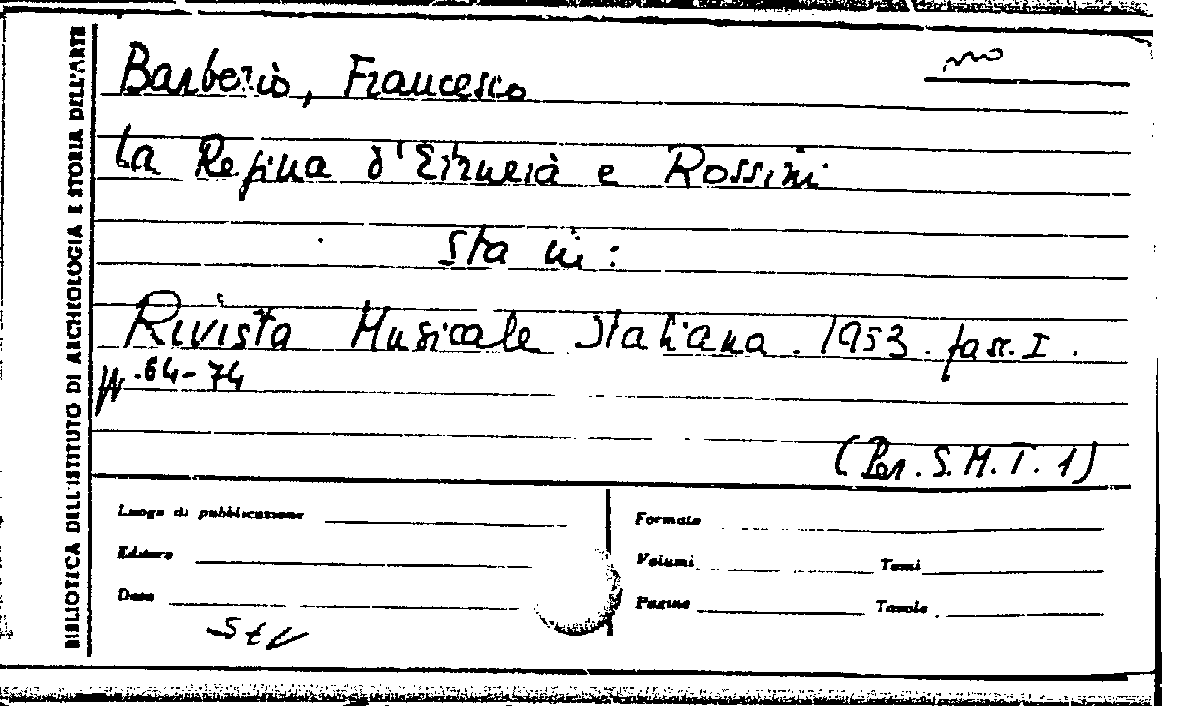 BIBLIOTECA DELL'ISTITUTO DI ARCHEOLOGIA E STORIA DELL'ARTE
Barberiò, Francesco
La Regina d'Etruria e Rossini
Sta in:
Rivista Musicale Italiana. 1953. fasc. I.
pp. 64-74
(Per. S.M.T. 1)
Luogo di pubblicazione
Editore
Data
Formato
Volumi Tomi
Pagine Tavole